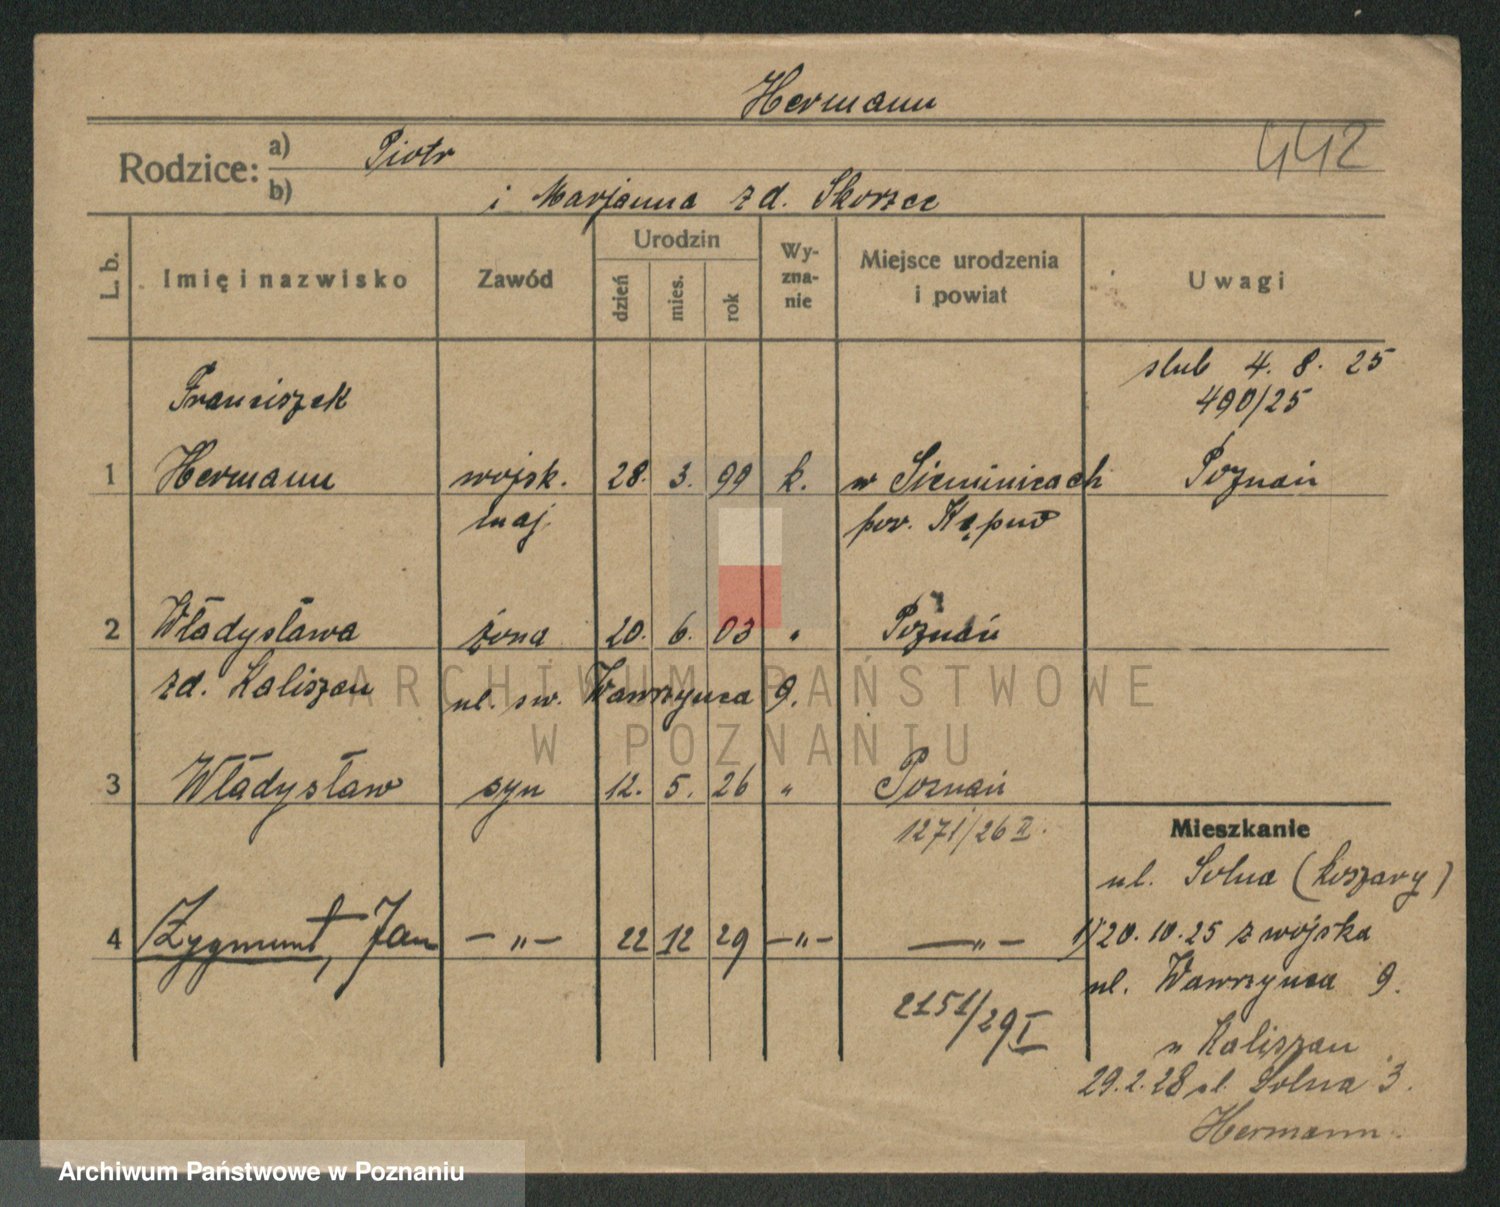 Hermann
442
Rodzice: a) Piotr
b) i Marjanna zd. Skorzec
L. b.
Imię i nazwisko
Zawód
Urodzin
dzień
mies.
rok
Wy-
zna-
nie
Miejsce urodzenia
i powiat
Uwagi
ślub 4. 8. 25
490/25
Franciszek
1 Hermann wojsk. 28. 3. 99 k. w Siemnicach Poznań
maj. pow. Kępno
2 Władysława żona 20. 6. 03 " Poznań
zd. Kaliszan ul. św. Wawrzynca 9.
ARCHIWUM PAŃSTWOWE
W POZNANIU
3 Władysław syn 12. 5. 26 " Poznań
1271/26 II.
Mieszkanie
ul. Solna (koszary)
4 Zygmunt, Jan — " — 22 12 29 — " — — " —
1) 20. 10. 25 z wojska
ul. Wawrzynca 9.
2151/29 I
u Kaliszan
29. 2. 28 ul. Solna 3.
Hermann.
Archiwum Państwowe w Poznaniu